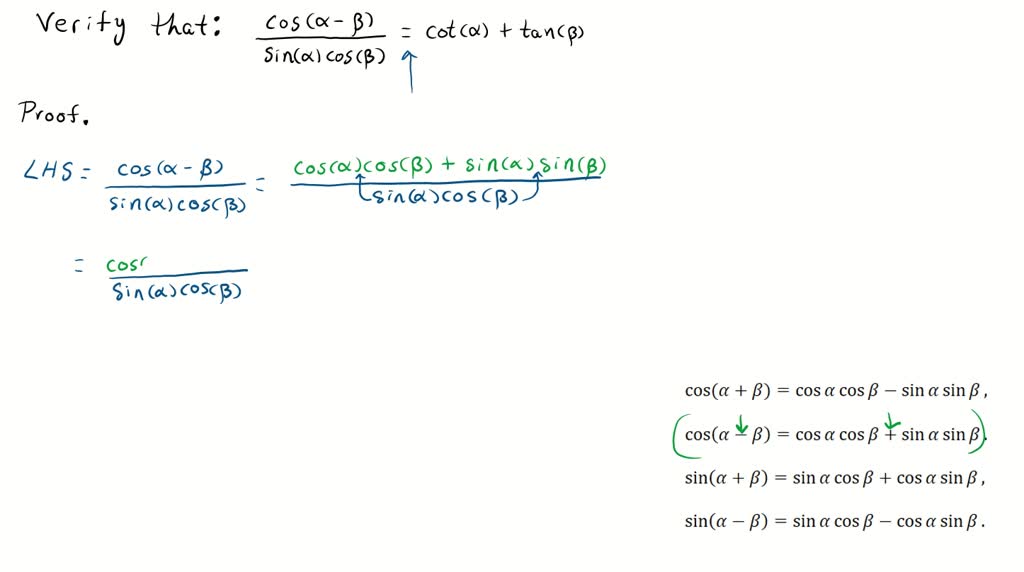 Verify that: cos(α - β) / sin(α) cos(β) = cot(α) + tan(β)
Proof.
LHS = cos(α - β) / sin(α) cos(β) = cos(α) cos(β) + sin(α) sin(β) / sin(α) cos(β)
= cos( / sin(α) cos(β)
cos(α + β) = cos α cos β − sin α sin β ,
cos(α − β) = cos α cos β + sin α sin β .
sin(α + β) = sin α cos β + cos α sin β ,
sin(α − β) = sin α cos β − cos α sin β .